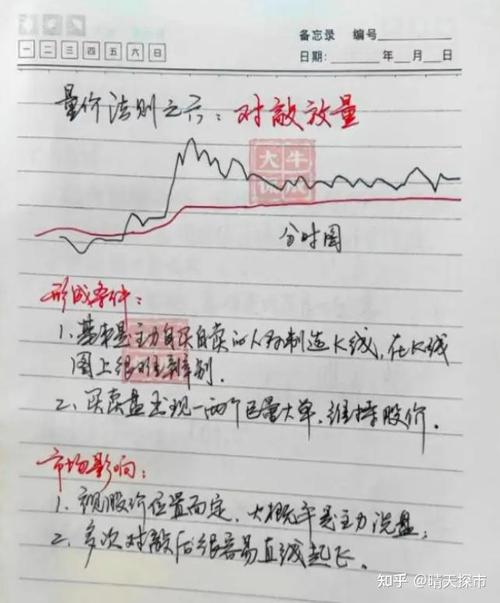 备忘录 编号
一 二 三 四 五 六 日
日期： 年 月 日
量价法则之六：对敲放量
大牛
分时图
形成条件：
1、基本是主力自买自卖的人为制造K线，在K线
图上很难辨别．
2、买卖盘出现一两个巨量大单，维持股价．
市场影响：
1、视股价位置而定、大概率是主力洗盘；
2、多次对敲后很容易直线起飞．
知乎 @晴天探市